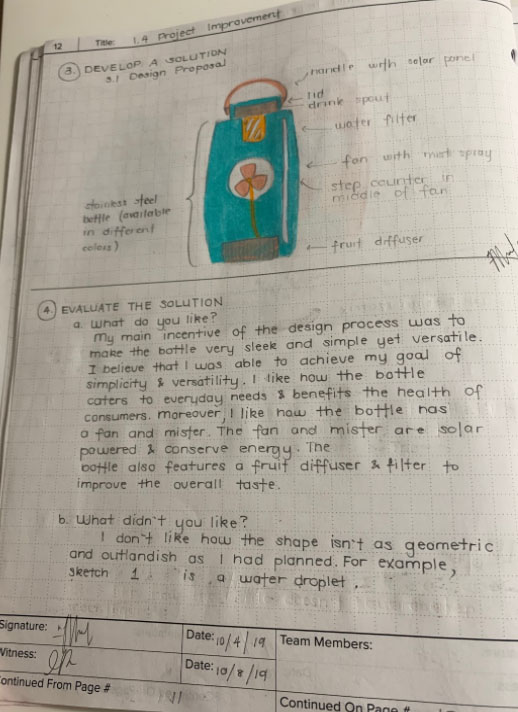 12
Title: 1.4 Project Improvement
3. DEVELOP A SOLUTION
3.1 Design Proposal
handle with solar panel
lid
drink spout
water filter
fan with mist spray
step counter in
middle of fan
stainless steel
bottle (available
in different
colors)
fruit diffuser
4. EVALUATE THE SOLUTION
a. What do you like?
My main incentive of the design process was to
make the bottle very sleek and simple yet versatile.
I believe that I was able to achieve my goal of
simplicity & versatility. I like how the bottle
caters to everyday needs & benefits the health of
consumers. Moreover, I like how the bottle has
a fan and mister. The fan and mister are solar
powered & conserve energy. The
bottle also features a fruit diffuser & filter to
improve the overall taste.
b. What didn't you like?
I don't like how the shape isn't as geometric
and outlandish as I had planned. For example,
sketch 1 is a water droplet.
Signature:
Date: 10/4/19
Team Members:
Witness:
Date: 10/8/19
Continued From Page # 11
Continued On Page #